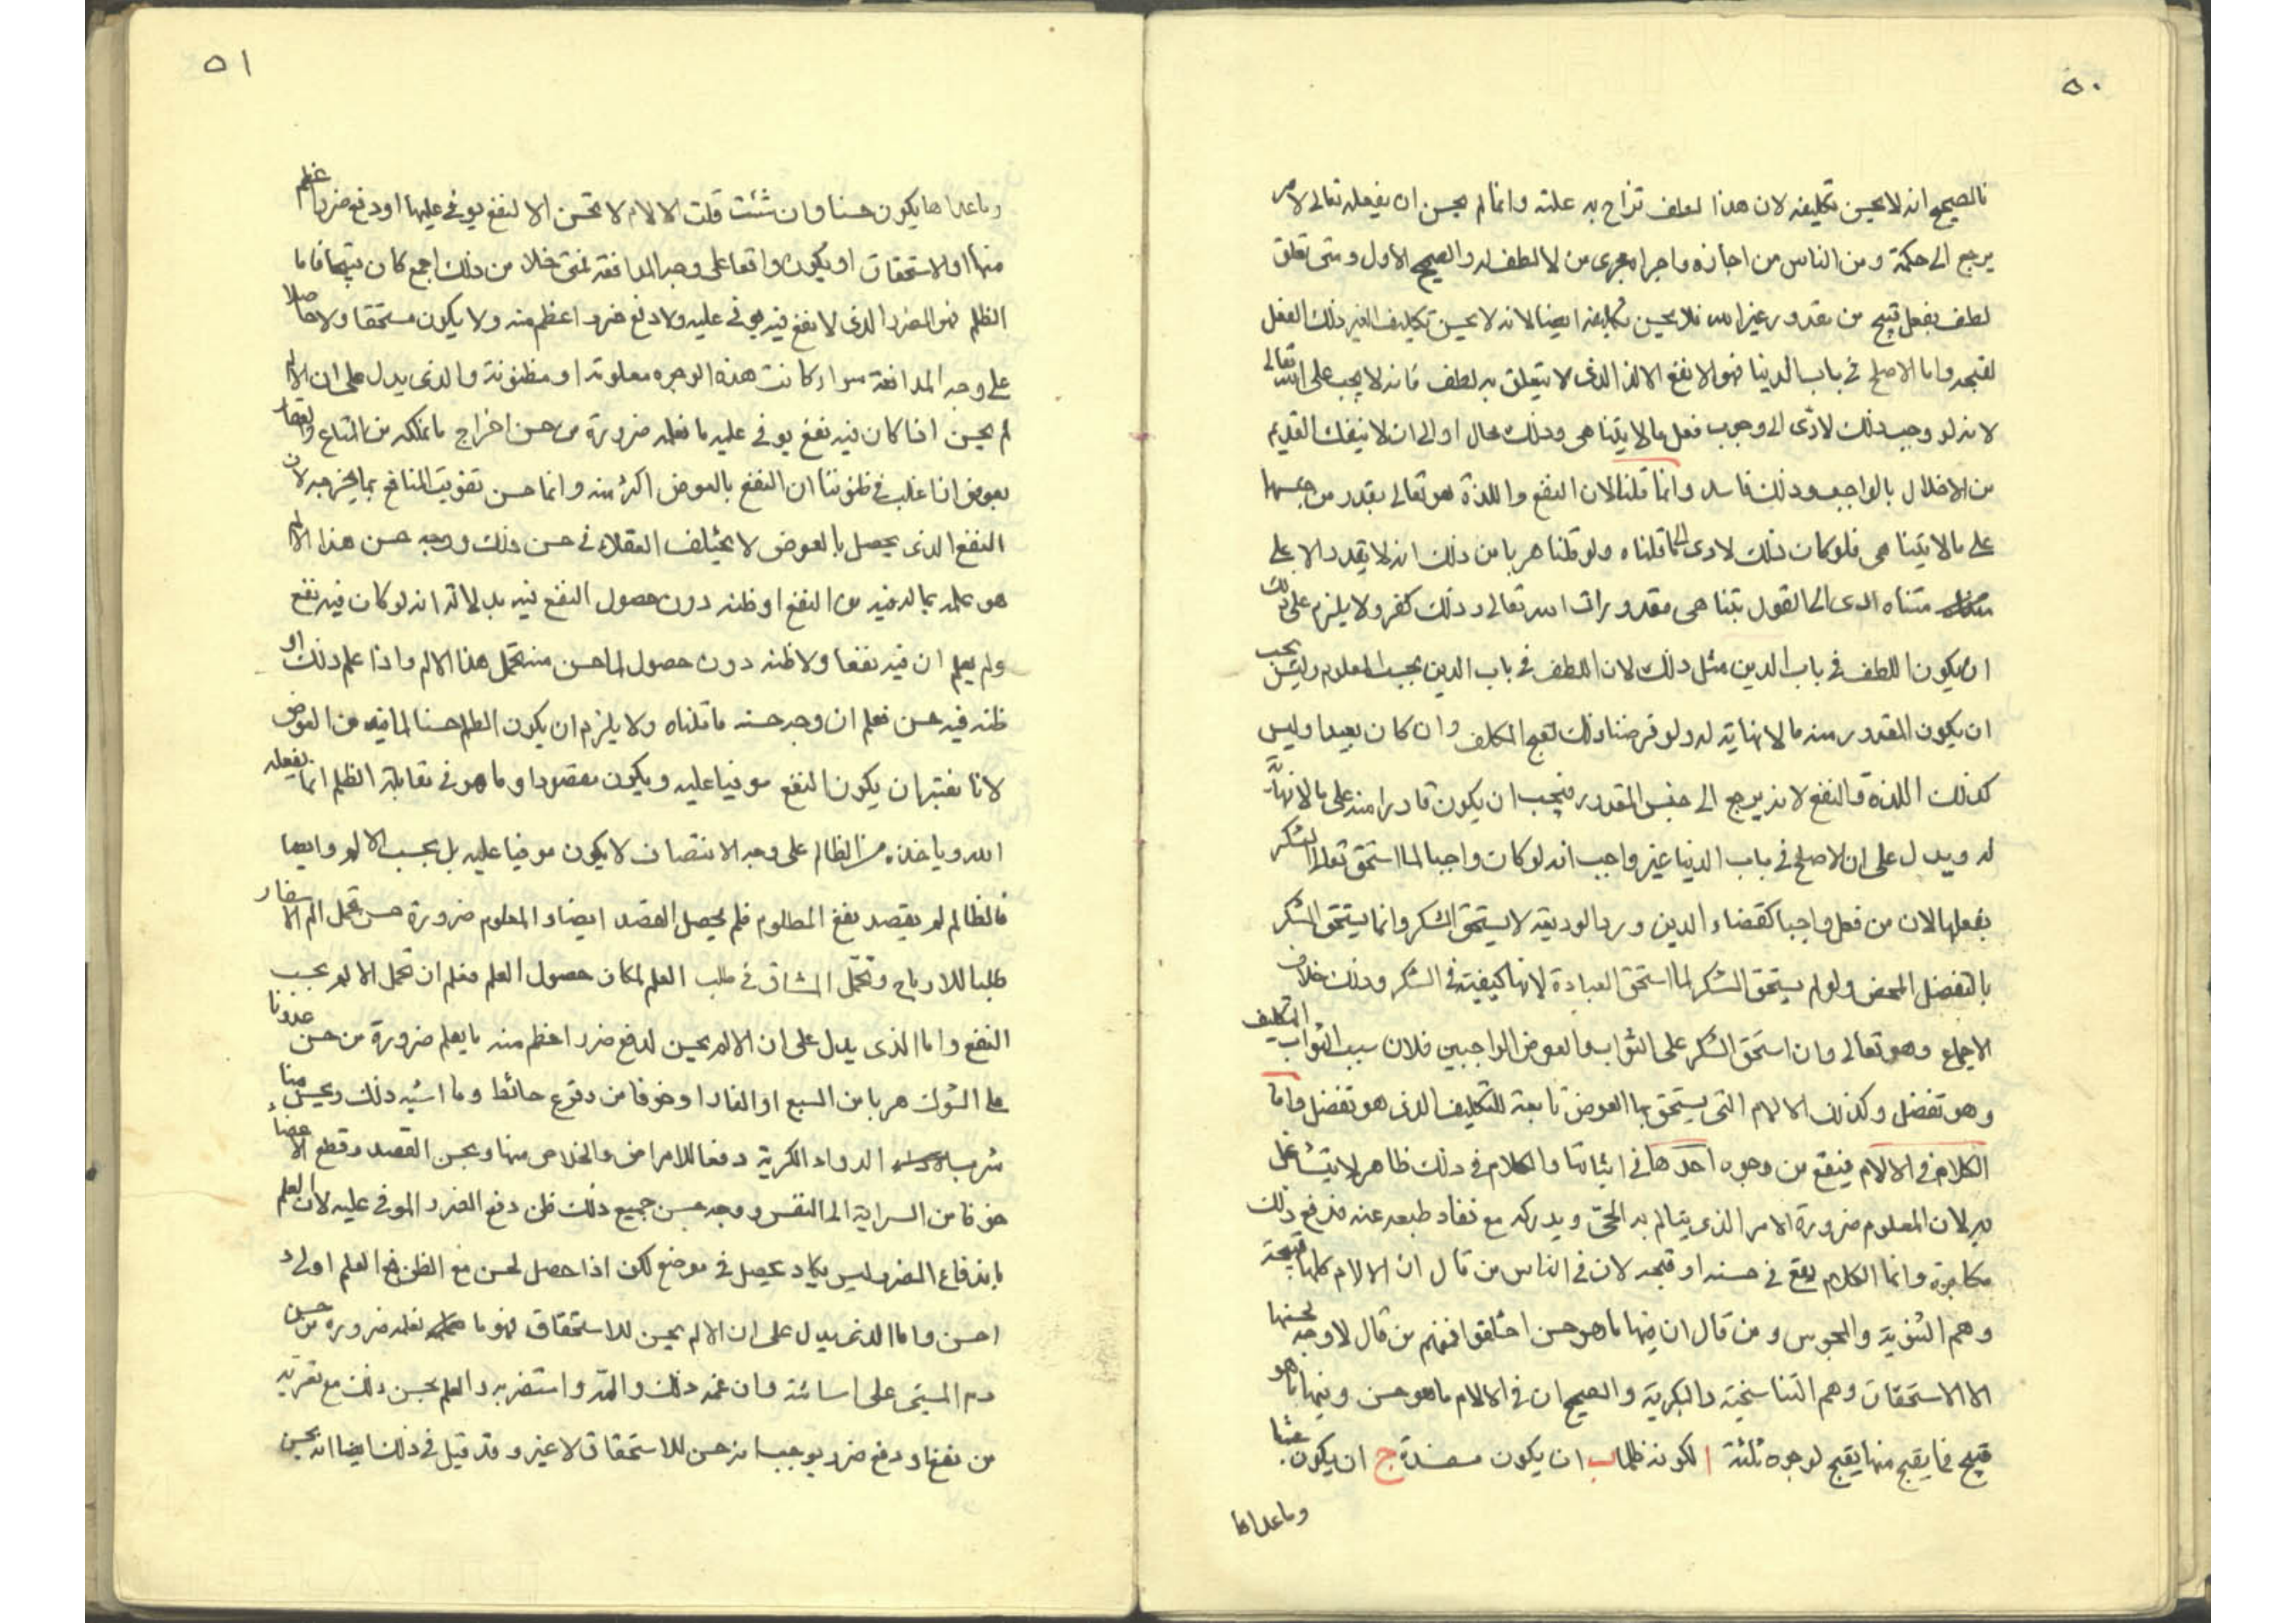 ٥٠
فالصحيح انه لا يحسن تكليفه لان هذا لطف تزاح به علته وانما لم يحسن ان يفعله تعالى لامر
يرجع الى حكمته ومن الناس من اجازه واجراه مجرى من لا لطف له والصحيح الاول ومتى تعلق
لطف بفعل قبيح من مقدور غير الله فلا يحسن تكليفه ايضا لانه لا يحسن تكليف الغير ذلك الفعل
لقبحه واما الاصلح في باب الدنيا فهو الانفع الالذ الذى لا يتعلق به لطف فانه لا يجب على الله تعالى
لانه لو وجب ذلك لادّى الى وجوب فعل ما لا يتناهى وذلك محال او الى ان لا ينفك القديم
من الاخلال بالواجب وذلك فاسد وانما قلنا لان النفع واللذة هو تعالى يقدر من جنسها
على ما لا يتناهى فلو كان ذلك لادى الى ما قلناه ولو قلنا هربا من ذلك انه لا يقدر الا على
متناه ادى الى القول بتناهى مقدورات الله تعالى وذلك كفر ولا يلزم على ذلك
ان يكون اللطف في باب الدين مثل ذلك لان اللطف في باب الدين يجب المعلوم وليس يجب
ان يكون المقدور منه ما لا نهاية له ولو فرضنا ذلك لقبح المكلف وان كان بعيدا وليس
كذلك اللذة والنفع لانه يرجع الى جنس المقدور فيجب ان يكون قادرا منه على ما لا نهاية
له ويدل على ان الاصلح في باب الدنيا غير واجب انه لو كان واجبا لما استحق تعالى الشكر
بفعلها لان من فعل واجبا كقضاء الدين ورد الوديعة لا يستحق الشكر وانما يستحق الشكر
بالتفضل المحض ولو لم يستحق الشكر لما استحق العبادة لانها كيفية في الشكر وذلك خلاف
الاجماع وهو تعالى وان استحق الشكر على الثواب والعوض الواجبين فلان سبب الثواب التكليف
وهو تفضل وكذلك الالام التى يستحق بها العوض تابعة للتكليف الذى هو تفضل واما
الكلام في الالام فيقع من وجوه احدها في اثباتها والكلام في ذلك ظاهر لا يتشاغل
به لان المعلوم ضرورة الامر الذى يتالم به الحىّ ويدركه مع نفار طبعه عنه فدفع ذلك
مكابرة وانما الكلام يقع في حسنه او قبحه لان في الناس من قال ان الالام كلها قبيحة
وهم الثنوية والمجوس ومن قال ان فيها ما هو حسن اختلفوا فمنهم من قال لا وجه لحسنها
الا الاستحقاق وهم التناسخية والبكرية والصحيح ان في الالام ما هو حسن وفيها ما هو
قبيح فما يقبح منها يقبح لوجوه ثلثة ا لكونه ظلما ب ان يكون مفسدة ج ان يكون عبثا
وما عداها
٥١
وما عداها يكون حسنا وان شئت قلت الالام لا تحسن الا لنفع يوفى عليها او دفع ضرر اعظم
منها او الاستحقاق او يكون واقعا على وجه المدافعة فمتى خلا من ذلك اجمع كان قبيحا فاما
الظلم فهو الضرر الذى لا نفع فيه يوفى عليه ولا دفع ضرر اعظم منه ولا يكون مستحقا ولا حاصلا
على وجه المدافعة سواء كانت هذه الوجوه معلومة او مظنونة والذى يدل على ان الالم
لم يحسن اذا كان فيه نفع يوفى عليه ما نعلمه ضرورة من حسن اخراج ما نملكه من المتاع
بعوض اذا غلب في ظنوننا ان النفع بالعوض اكثر منه وانما حسن تفويت المنافع بما يخرجه لان
النفع الذى يحصل بالعوض لا يختلف العقلاء في حسن ذلك ووجه حسن هذا الالم
هو علمه بما له فيه من النفع او ظنه دون حصول النفع فيه بدلالة انه لو كان فيه نفع
ولم يعلم ان فيه نفعا ولا ظنه دون حصول لما حسن منه تحمل هذا الالم واذا علم ذلك او
ظنه فيه حسن فعلم ان وجه حسنه ما قلناه ولا يلزم ان يكون الظلم حسنا لما فيه من العوض
لانا نعتبر ان يكون النفع موفيا عليه ويكون مقصودا وما هو في مقابلة الظلم انما يفعله
الله وياخذه من الظالم على وجه الانتصاف لا يكون موفيا عليه بل بحسب الالم وايضا
فالظالم لم يقصد نفع المظلوم فلم يحصل القصد ايضا والمعلوم ضرورة حسن تحمل الم الاسفار
طلبا للارباح وتحمّل المشاق في طلب العلم لمكان حصول العلم فعلم ان تحمل الالم بحسب
النفع واما الذى يدل على ان الالم يحسن لدفع ضرر اعظم منه ما يعلم ضرورة من حسن عدونا
على الشوك هربا من السبع او النار او خوفا من وقوع حائط وما اشبه ذلك ويحسن منا
شرب الدواء الكريه دفعا للامراض والخلاص منها ويحسن الفصد وقطع الاعضاء
خوفا من السراية الى النفس ووجه حسن جميع ذلك ظن دفع الضرر الموفى عليه لان العلم
باندفاع الضرر ليس يكاد يحصل في موضع لكن اذا حصل لحسن مع الظن فمع العلم اولى و
احسن واما الذى يدل على ان الالم يحسن للاستحقاق فهو ما نعلمه ضرورة من حسن
ذم المسيئ على اسائته وان غمه ذلك والمه واستضر به والعلم بحسن ذلك مع تعريه
من نفع او دفع ضرر يوجب انه حسن للاستحقاق لا غير وقد قيل في ذلك ايضا انه يحسن